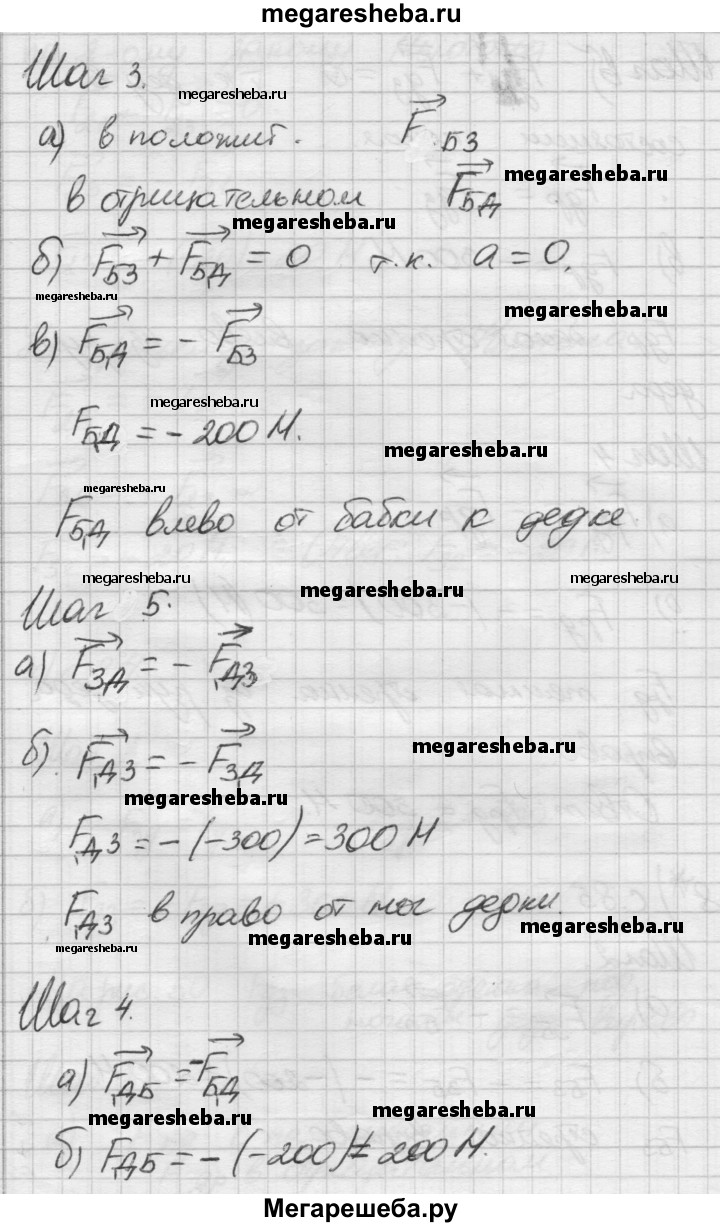 megaresheba.ru
Шаг 3.
megaresheba.ru
а) в положит. F БЗ
megaresheba.ru
в отрицательном F БД
megaresheba.ru
б) F БЗ + F БД = 0 т.к. a = 0.
megaresheba.ru
megaresheba.ru
в) F БД = - F БЗ
megaresheba.ru
F БД = - 200 Н.
megaresheba.ru
megaresheba.ru
F БД влево от бабки к дедке.
megaresheba.ru
megaresheba.ru
megaresheba.ru
Шаг 5.
а) F ЗД = - F ДЗ
б) F ДЗ = - F ЗД
megaresheba.ru
megaresheba.ru
F ДЗ = - (-300) = 300 Н
F ДЗ вправо от ног дедки
megaresheba.ru
megaresheba.ru
megaresheba.ru
Шаг 4.
а) F ДБ = - F БД
megaresheba.ru
megaresheba.ru
б) F ДБ = - (-200) = 200 Н.
Мегарешеба.ру